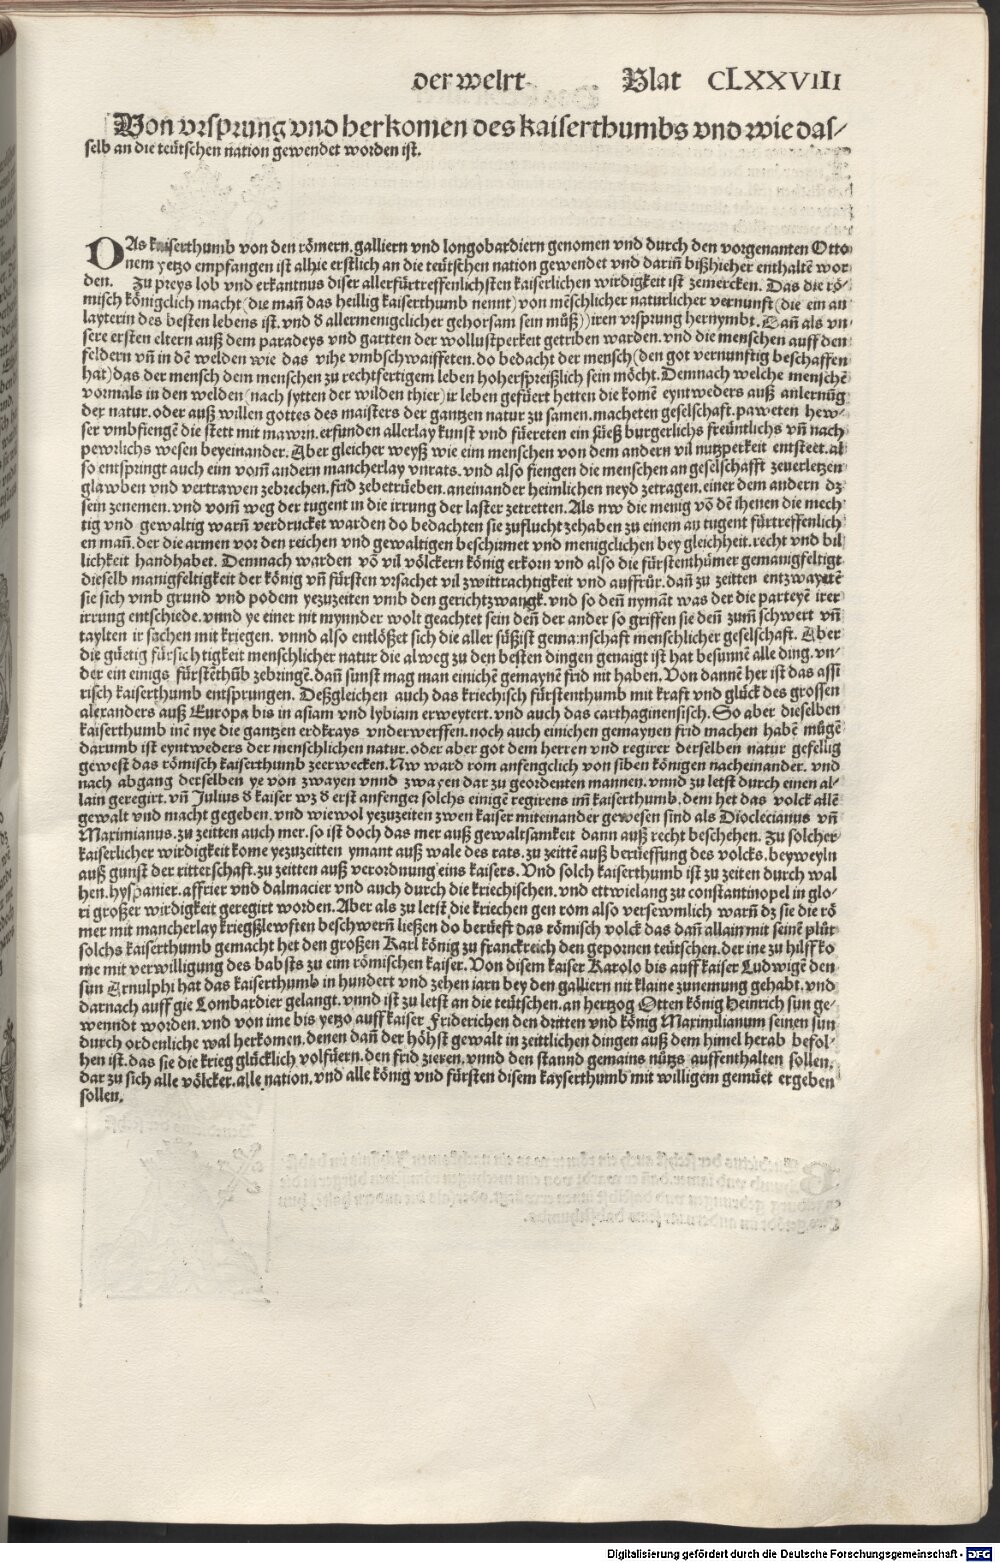 der welrt Blat CLXXVIII
Von vrsprung vnd herkomen des kaiserthumbs vnd wie das/
selb an die teütschen nation gewendet worden ist.
DAs kaiserthumb von den römern.galliern vnd longobardiern genomen vnd durch den vorgenanten Otto
nem yetzo empfangen ist alhie erstlich an die teütschen nation gewendet vnd dariñ bißhieher enthaltē wor
den. Zu preys lob vnd erkantnus diser allerfürtreffenlichsten kaiserlichen wirdigkeit ist zemercken. Das die rö-
misch königclich macht (die mañ das heillig kaiserthumb nennt) von mēschlicher naturlicher vernunft (die ein an
layterin des besten lebens ist.vnd ð allermenigclicher gehorsam sein müß)) iren vrsprung hernymbt. Dañ als vn
sere ersten eltern auß dem paradeys vnd gartten der wollustperkeit getriben warden.vnd die menschen auff den
feldern vñ in dē welden wie das vihe vmbschwaiffeten.do bedacht der mensch (den got vernunftig beschaffen
hat) das der mensch dem menschen zu rechtfertigem leben hoherspreißlich sein möcht. Demnach welche menschē
vormals in den welden (nach sytten der wilden thier) ir leben gefüert hetten die komē eyntweders auß anlernūg
der natur.oder auß willen gottes des maisters der gantzen natur zu samen.macheten geselschaft.paweten hew-
ser vmbfiengē die stett mit mawrn.erfunden allerlay kunst vnd füereten ein süeß burgerlichs freüntlichs vñ nach
pewrlichs wesen beyeinander. Aber gleicher weyß wie eim menschen von dem andern vil nutzperkeit entsteet.al
so entspringt auch ein vom̄ andern mancherlay vnrats.vnd also fiengen die menschen an geselschafft zeuerletzen
glawben vnd vertrawen zebrechen.frid zebetrüeben.aneinander heimlichen neyd zetragen.einer dem andern dz
sein zenemen.vnd vom̄ weg der tugent in die irrung der laster zetretten. Als nw die menig vō dē ihenen die mech
tig vnd gewaltig warñ verdruckst warden do bedachten sie zuflucht zehaben zu einem an tugent fürtreffenlich
en mañ.der die armen vor den reichen vnd gewaltigen beschirmet vnd menigclichen bey gleichheit.recht vnd bil
lichkeit handhabet. Demnach warden vō vil völckern könig erkorn vnd also die fürstenthümer gemanigfeltigt
dieselb manigfeltigkeit der könig vñ fürsten vrsachet vil zwittrachtigkeit vnd auffrür.dañ zu zeitten entzwayetē
sie sich vmb grund vnd podem yezuzeiten vmb den gerichtzwangk.vnd so deñ nymāt was der die parteyē irer
irrung entschiede.vnnd ye einer nit mynnder wolt geachtet sein deñ der ander so griffen sie deñ zum̄ schwert vñ
taylten ir sachen mit kriegen. vnnd also entlößet sich die aller süßist gemainschaft menschlicher geselschaft. Aber
die güetig fürsichtigkeit menschlicher natur die alweg zu den besten dingen genaigt ist hat besunnē alle ding.vn-
der ein einigs fürstēthūb zebringē.dañ sunst mag man einichē gemaynē frid nit haben. Von dannē her ist das assi
risch kaiserthumb entsprungen. Deßgleichen auch das kriechisch fürstenthumb mit kraft vnd glück des grossen
alexanders auß Europa bis in asiam vnd lybiam erweytert.vnd auch das carthaginensisch. So aber dieselben
kaiserthumb inē nye die gantzen erdkrays vnderwerffen.noch auch einichen gemaynen frid machen habē mügē
darumb ist eyntweders der menschlichen natur.oder aber got dem herren vnd regirer derselben natur gefellig
gewest das römisch kaiserthumb zeerwecken. Nw ward rom anfengclich von siben königen nacheinander. vnd
nach abgang derselben ye von zwayen vnnd zwayen dar zu geordenten mannen.vnnd zu letst durch einen al-
lain geregirt.vñ Julius ð kaiser wz ð erst anfenger solchs einigē regirens im̄ kaiserthumb.dem het das volck allē
gewalt vnd macht gegeben.vnd wiewol yezuzeiten zwen kaiser miteinander gewesen sind als Dioclecianus vñ
Maximianus.zu zeitten auch mer.so ist doch das mer auß gewaltsamkeit dann auß recht beschehen. Zu solcher
kaiserlicher wirdigkeit kome yezuzeitten ymant auß wale des rats.zu zeittē auß berüeffung des volcks.beyweyln
auß gunst der ritterschaft.zu zeitten auß verordnung eins kaisers. Vnd solch kaiserthumb ist zu zeiten durch wal
hen.hyspanier.affrier vnd dalmacier vnd auch durch die kriechischen.vnd ettwielang zu constantinopel in glo-
ri großer wirdigkeit geregirt worden. Aber als zu letst die kriechen gen rom also versewmlich warñ dz sie die rö
mer mit mancherlay kriegßlewften beschwerñ ließen do berüeft das römisch volck das dañ allain mit seinē plüt
solchs kaiserthumb gemacht het den großen Karl könig zu franckreich den gepornen teütschen.der ine zu hilff ko
me mit verwilligung des babsts zu eim römischen kaiser. Von disem kaiser Karolo bis auff kaiser Ludwigē den
sun Arnulphi hat das kaiserthumb in hundert vnd zehen iarn bey den galliern nit klaine zunemung gehabt.vnd
darnach auff gie Lombardier gelangt.vnnd ist zu letst an die teütschen.an hertzog Otten könig Heinrich sun ge-
wenndt worden.vnd von ime bis yetzo auff kaiser Friderichen den dritten vnd könig Maximilianum seinen sun
durch ordenliche wal herkomen.denen dañ der höhst gewalt in zeittlichen dingen auß dem himel herab befol-
hen ist.das sie die krieg glücklich volfüern.den frid zieren.vnnd den stannd gemains nütz auffenthalten sollen.
dar zu sich alle völcker.alle nation.vnd alle könig vnd fürsten disem kayserthumb mit willigem gemüet ergeben
sollen.
Digitalisierung gefördert durch die Deutsche Forschungsgemeinschaft - DFG